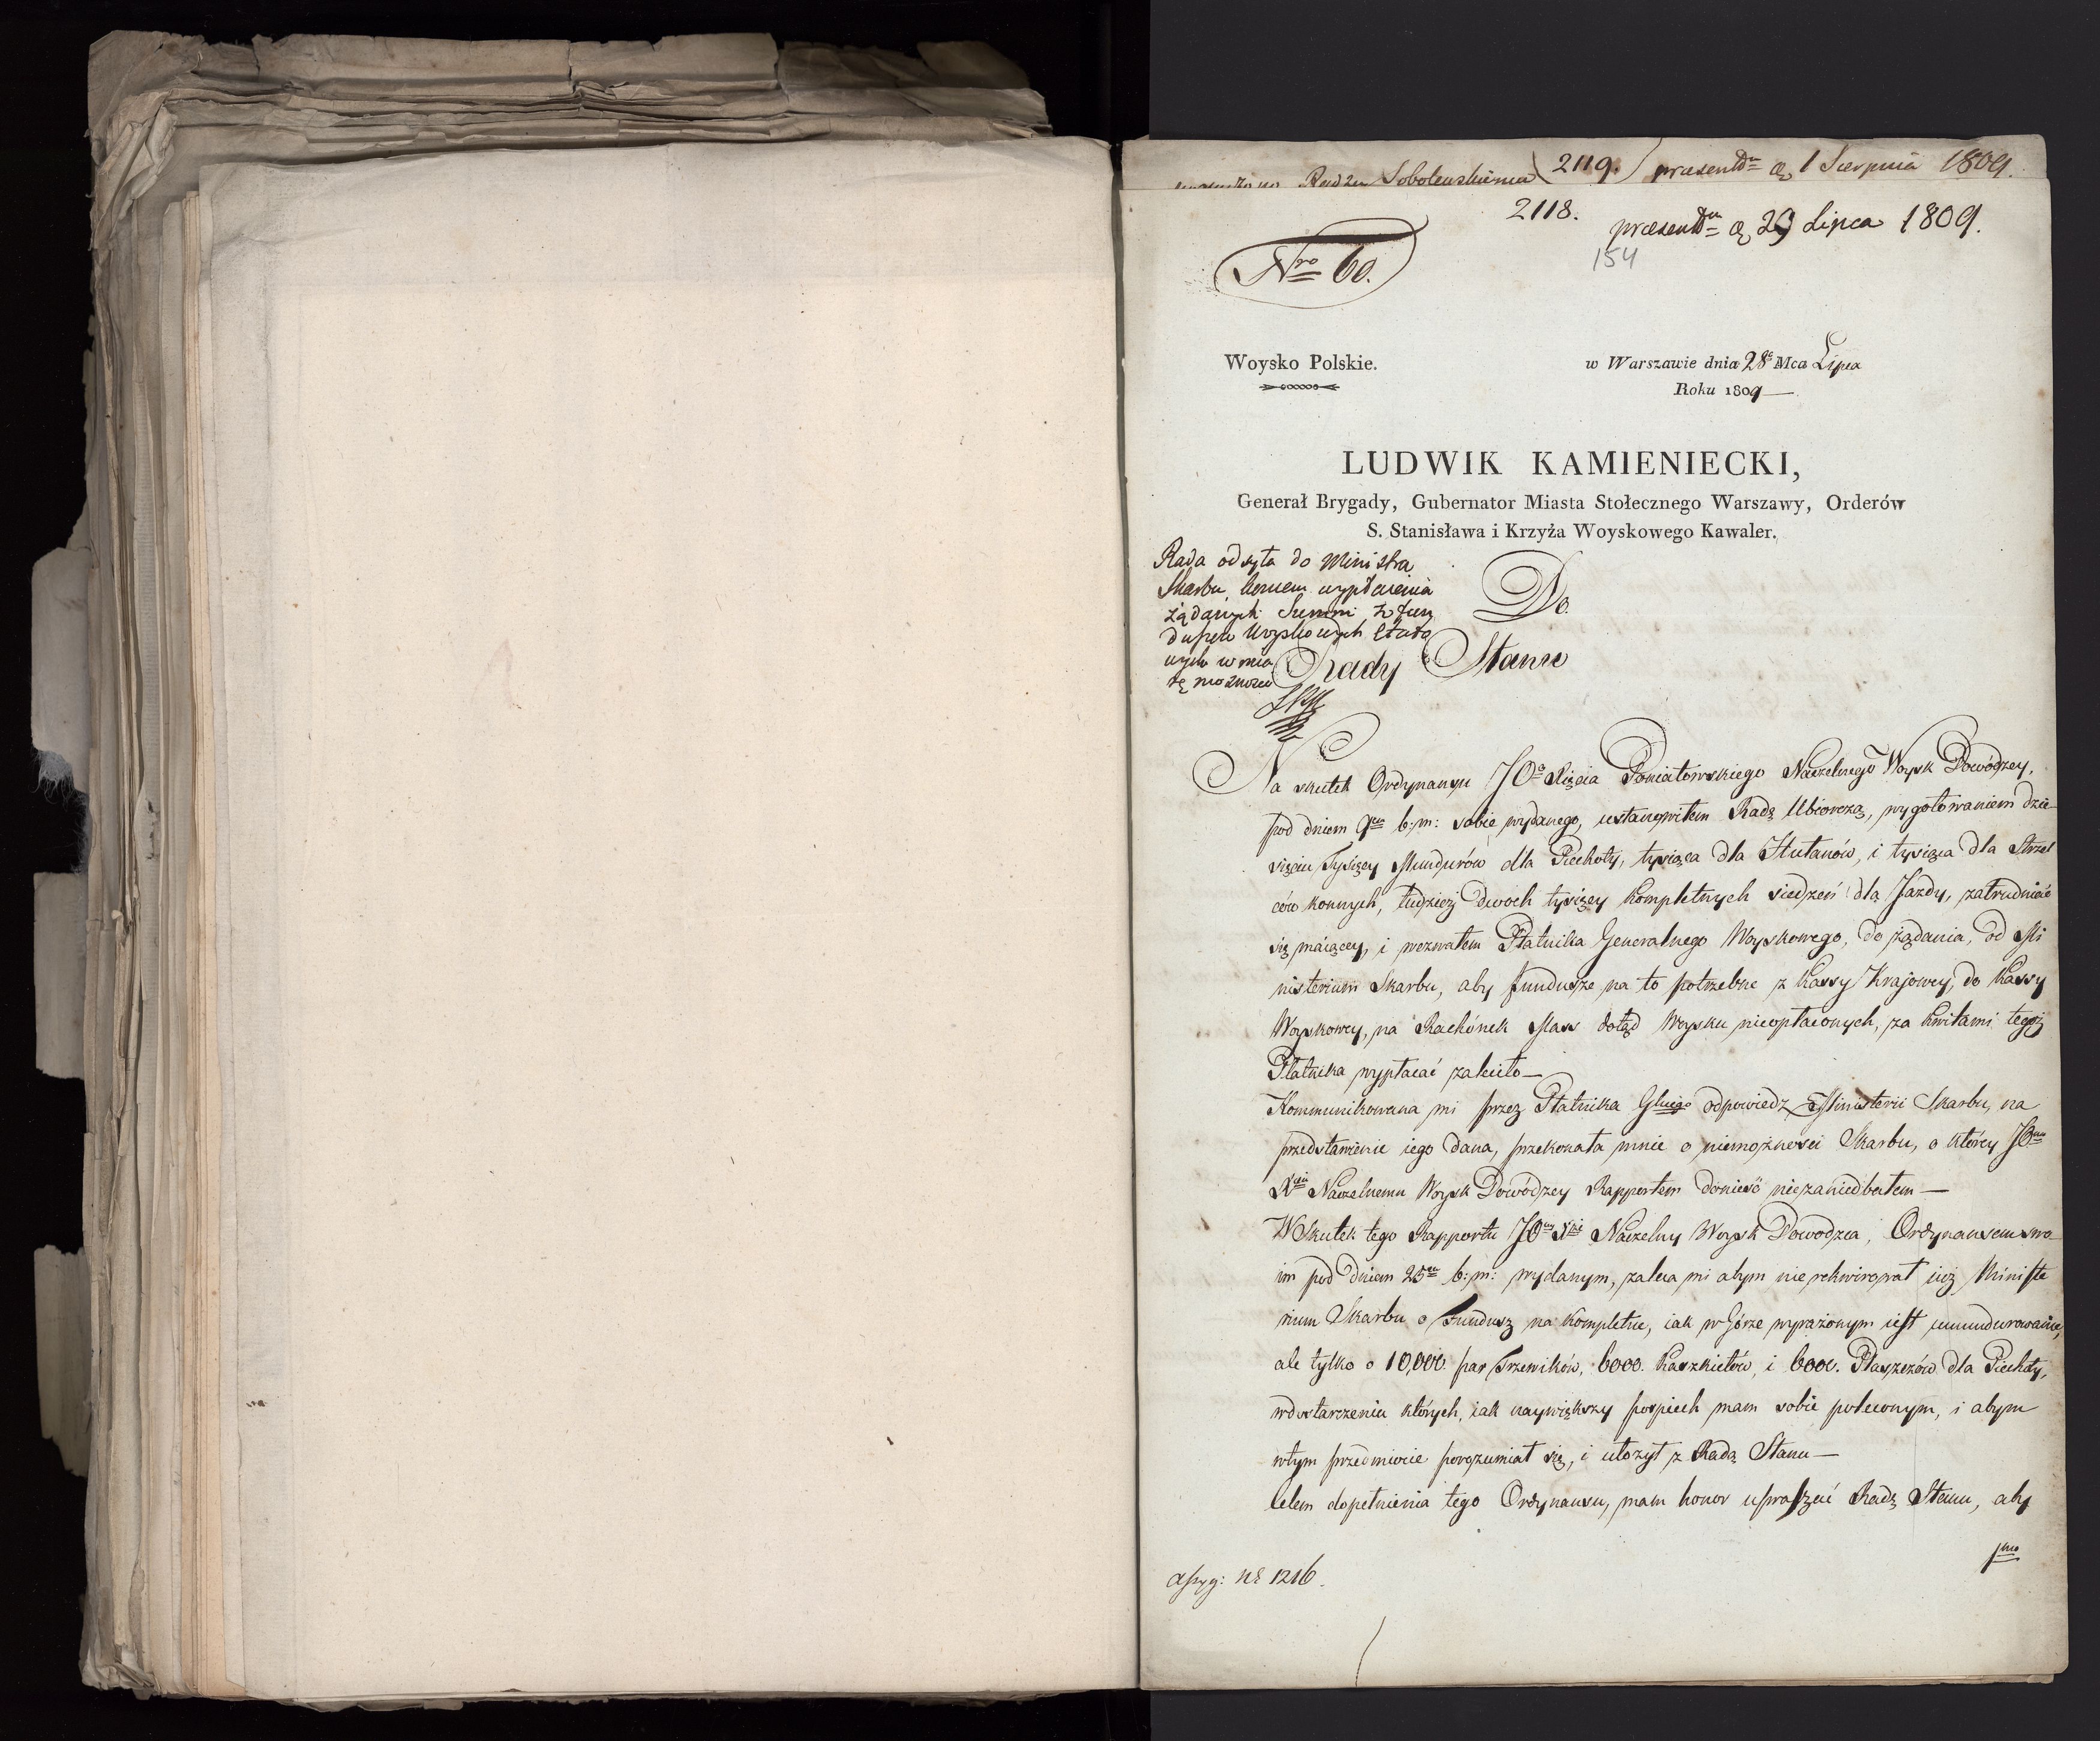 Sobolewskiemu 2119. praesentn d 1 Sierpnia 1809.
2118.
praesentn d 29 Lipca 1809.
154
Nro 60.
Woysko Polskie.
w Warszawie dnia 28o Mca Lipca
Roku 1809
LUDWIK KAMIENIECKI,
Generał Brygady, Gubernator Miasta Stołecznego Warszawy, Orderów
S. Stanisława i Krzyża Woyskowego Kawaler.
Rada odsyła do Ministra
Skarbu, końcem wypłacenia
żądanych Summ z fun
duszu Woyskowych Etato
wych w mia
rę możnosci
Do
Rady Stanu
Na skutek Ordynansu JOo Xięcia Poniatowskiego Naczelnego Woysk Dowódzcy,
pod dniem 9m b: m: sobie wydanego, ustanowiłem Radę Ubiorczą, wygotowaniem dzie-
sięciu Tysięcy Mundurów dla Piechoty, tysiąca dla Hułanów, i tysiąca dla Strzel
ców konnych, tudzież dwoch tysięcy kompletnych siedzeń dla Jazdy, zatrudniać
się maiącey, i wezwałem Płatnika Generalnego Woyskowego, do żądania, od Mi
nisterium Skarbu, aby fundusze na to potrzebne z Kassy Krajowey, do Kassy
Woyskowey, na Rachónek Mass dotąd Woysku nieopłaconych, za kwitami tegoż
Płatnika wypłacać zaleciło—
Kommunikowana mi przez Płatnika Glnego odpowiedz Ministerii Skarbu, na
przedstawienie iego dana, przekonała mnie o niemożnosci Skarbu, o którey JOmu
Xciu Naczelnemu Woysk Dowodzcy Rapportem donieść niezaniedbałem—
W Skutek tego Rapportu JOny Xże Naczelny Woysk Dowodzca, Ordynansem swo
im pod dniem 25m b: m: wydanym, zaleca mi abym nie rekwirował iuż Ministe
rium Skarbu o Fundusz na kompletne, iak w Górze wyrażonym iest umundurowanie,
ale tylko o 10,000. par Trzewików, 6000. Kaszkietów, i 6000. Płaszczów dla Piechoty,
w dostarczeniu których, iak naywiększy pospiech mam sobie poleconym, i abym
w tym przedmiocie porozumiał się, i ułożył z Radą Stanu—
Celem dopełnienia tego Ordynansu, mam honor upraszać Radę Stanu, aby
1mo
assyg: nr 1216.